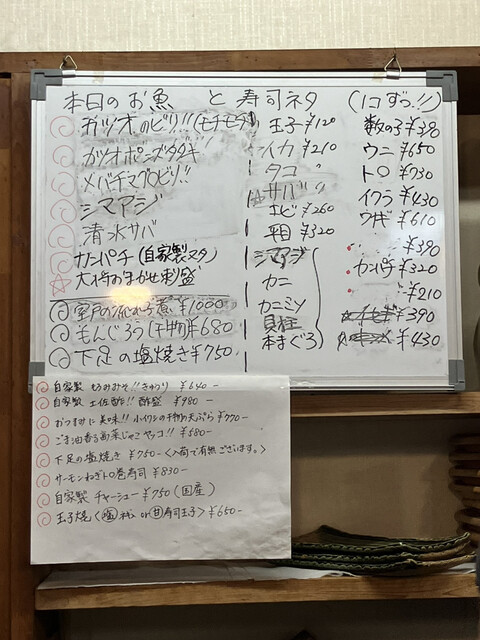 本日のお魚 と 寿司ネタ (1コずつ!!)
カツオのビリ!! (モチモチ)
カツオポン酢タタキ
メバチマグロビリ!!
シマアジ
清水サバ
カンパチ (自家製ヌタ)
大将おまかせ刺盛
煮 ¥1000
もんじろう (干物) ¥680
下足の塩焼き ¥750
玉子 ¥120
イカ ¥210
タコ 〃
サバ 〃
エビ ¥260
平目 ¥320
シマアジ
カニ
カニミソ
貝柱
本まぐろ
数の子 ¥390
ウニ ¥650
トロ ¥730
イクラ ¥430
ウナギ ¥610
¥390
カンパチ ¥320
¥210
¥390
¥430
自家製 きゅうり ¥640-
自家製 土佐酢!! 酢盛 ¥980-
おつまみに 美味!! 小イワシの干物の天ぷら ¥770-
ごま油香る高菜じゃこヤッコ!! ¥580-
下足の塩焼き ¥750-<入荷で有無ございます。>
サーモンねぎトロ巻寿司 ¥830-
自家製 チャーシュー ¥750 (国産)
玉子焼 <塩 or 甘 寿司玉子> ¥650-